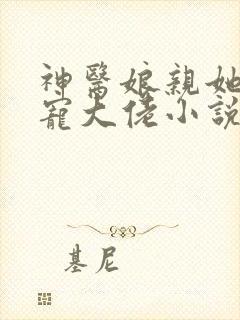 神醫娘親她
寵大佬小説
基尼